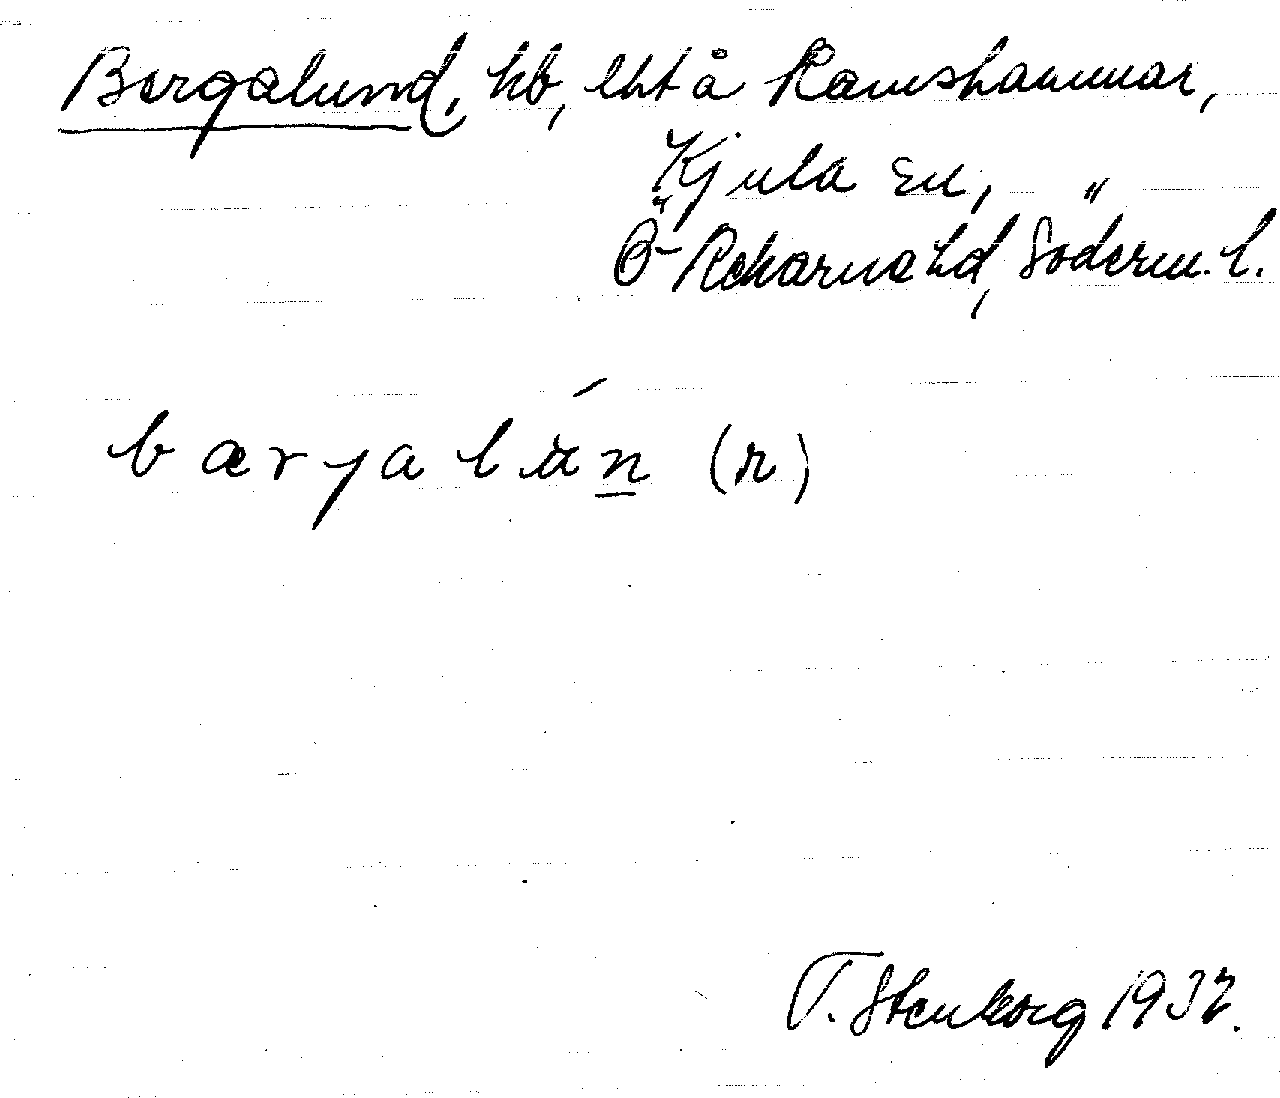 Bergalund, hb, lht å Ramshammar,
Kjula sn, "
Ö-Rekarne hd, Söderm. l.
bærgalun (n)
T. Stenborg 1932.